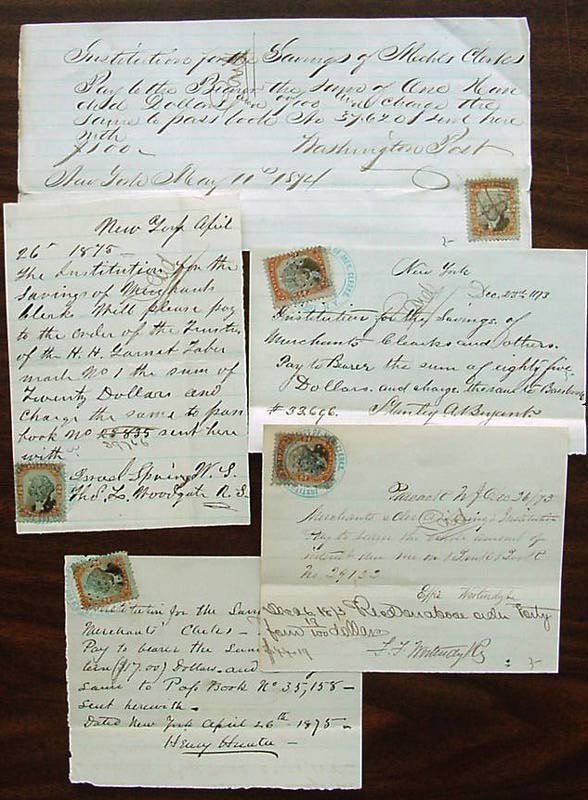 Institution for the Savings of Mchts Clerks
Pay to the Bearer the sum of One Hun
dred Dollars and charge the
same to pass book No 37,620 sent here
with
$100— Washington Post
New York May 11th 1874
New York April
26th 1875—
The Institution for the
Savings of Merchants
Clerks Will please pay
to the order of the Trustees
of the H. H. Garnet Taber
nacle No 1 the sum of
Twenty Dollars and
Charge the same to pass
book No 25835 sent here
39716
with
Israel Spring W. S.
Thos. L. Woodgate R. S.
New York
Dec. 23rd 1873
Institution for the Savings of
Merchants Clearks and others.
Pay to Bearer the sum of eighty five
Dollars. and charge the same to Bankbook
# 33696. Stanley A Bryant
Passaic N J Dec 26/73
Merchants Clerks Savings Institution
Pay to bearer the amount of
interest due me on Bank Book
No. 29133
Effie
Dec 26, 1873 Rec Forty
four 19/100 dollars
$44.19
Institution for the Savings
Merchants' Clerks—
Pay to bearer the Sum
teen ($17.00) Dollars and
same to Pass Book No 35,158—
sent herewith—
Dated New York April 26th 1875—
Henry Hunter—